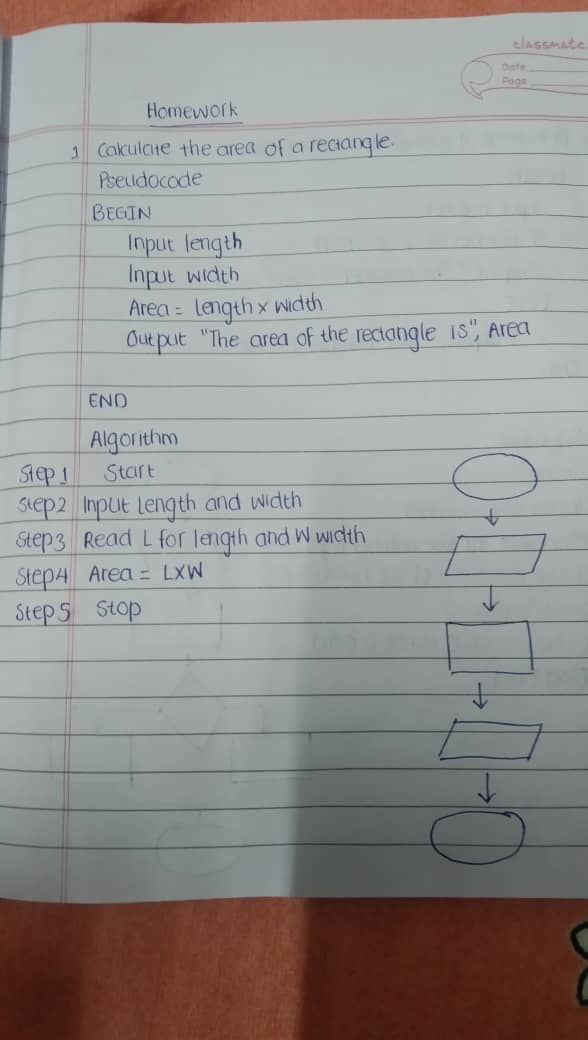 classmate
Date
Page
Homework
1 Calculate the area of a rectangle.
Pseudocode
BEGIN
Input length
Input width
Area = length x width
Output "The area of the rectangle is", Area
END
Algorithm
Step 1 Start
Step 2 Input Length and width
Step 3 Read L for length and W width
Step 4 Area = LXW
Step 5 Stop